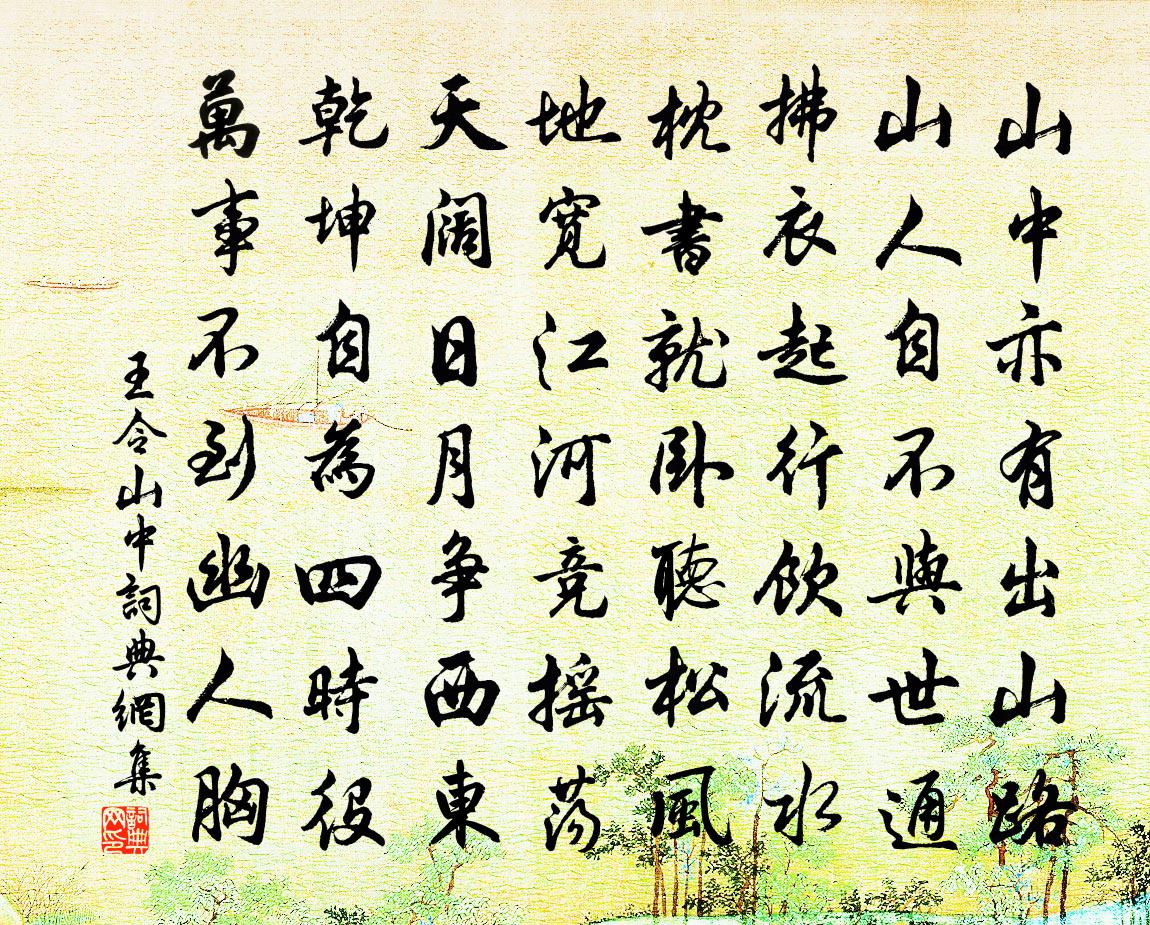 山中亦有出山路
山人自不與世通
拂衣起行飲流水
枕書就卧聽松風
地寬江河竞摇蕩
天闊日月争西東
乾坤自為四時役
萬事不到幽人胸
王令山中詞典網集
詞典
网印